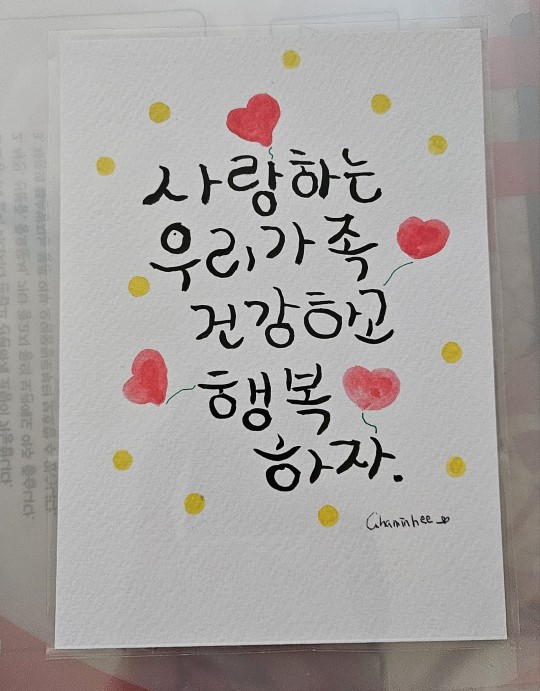 사랑하는
우리가족
건강하고
행복
하자.
Chaminhee